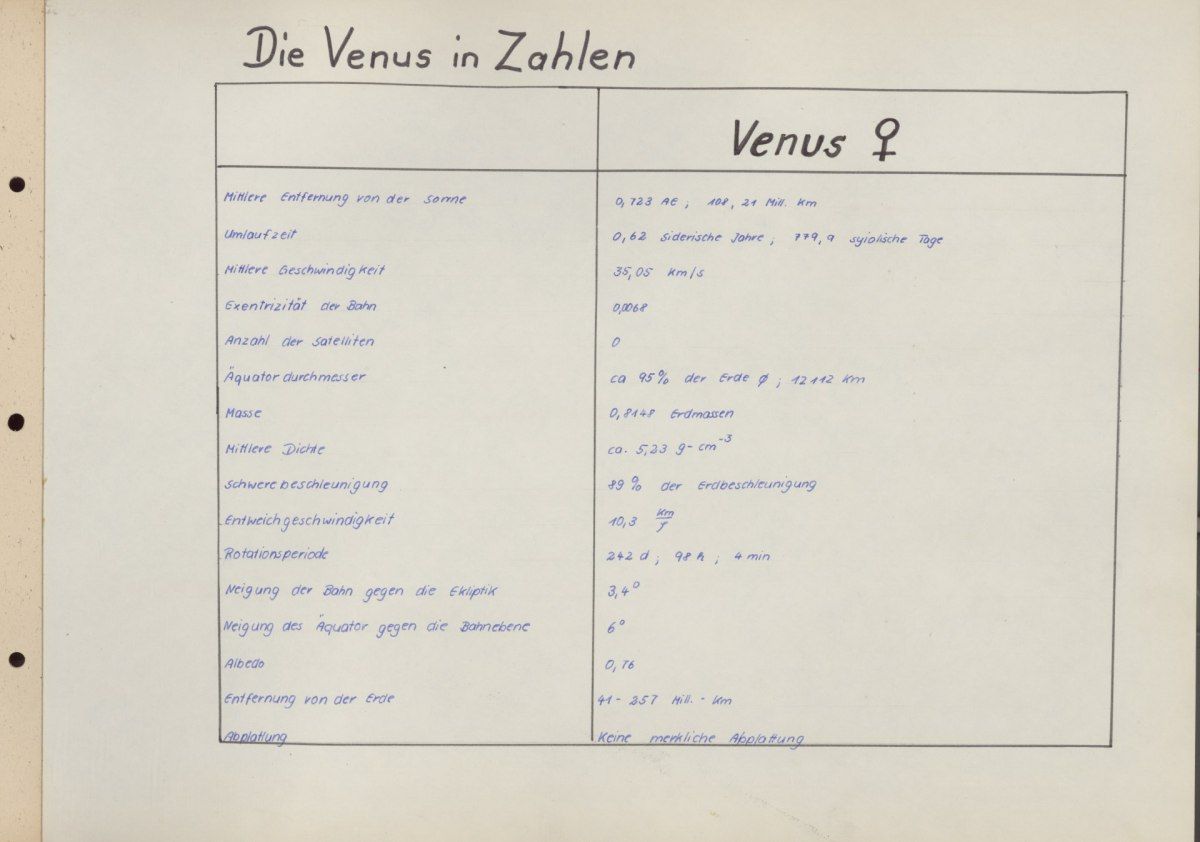 Die Venus in Zahlen
Venus ♀
Mittlere Entfernung von der Sonne 0,723 AE ; 108,21 Mill. Km
Umlaufzeit 0,62 Siderische Jahre ; 779,9 syiolische Tage
Mittlere Geschwindigkeit 35,05 Km/s
Exentrizität der Bahn 0,0068
Anzahl der Satelliten 0
Äquatordurchmesser ca 95% der Erde ∅ ; 12112 Km
Masse 0,8148 Erdmassen
Mittlere Dichte ca. 5,23 g-cm⁻³
Schwerebeschleunigung 89% der Erdbeschleunigung
Entweichgeschwindigkeit 10,3 Km/s
Rotationsperiode 242 d ; 98 h ; 4 min
Neigung der Bahn gegen die Ekliptik 3,4°
Neigung des Äquator gegen die Bahnebene 6°
Albedo 0,76
Entfernung von der Erde 41 - 257 Mill. - Km
Abplattung Keine merkliche Abplattung